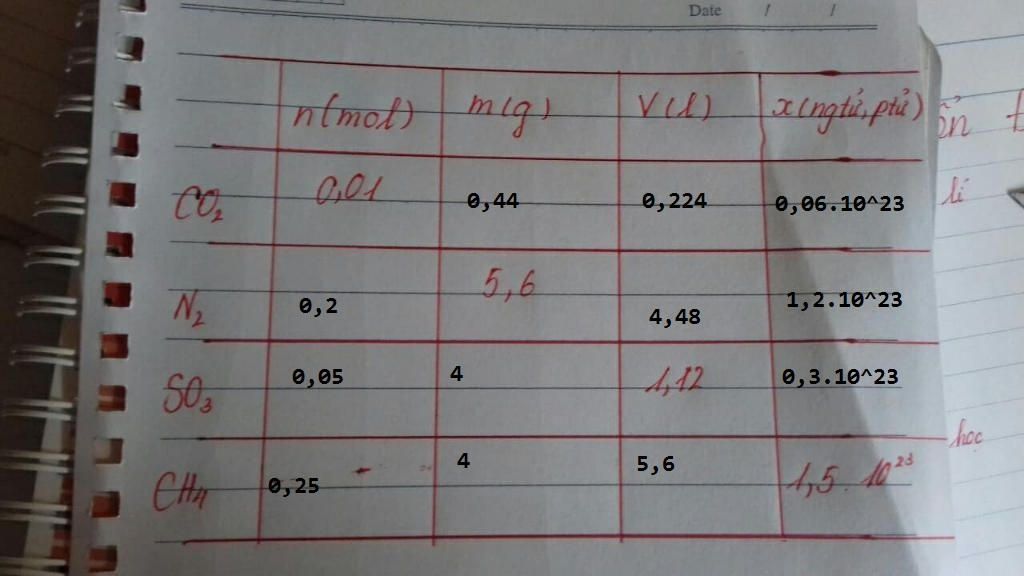 Date / /
n(mol) m(g) V(l) x(ngtử, ptử)
CO₂ 0,01 0,44 0,224 0,06.10^23
N₂ 0,2 5,6 4,48 1,2.10^23
SO₃ 0,05 4 1,12 0,3.10^23
CH₄ 0,25 4 5,6 1,5.10²³
lí
học